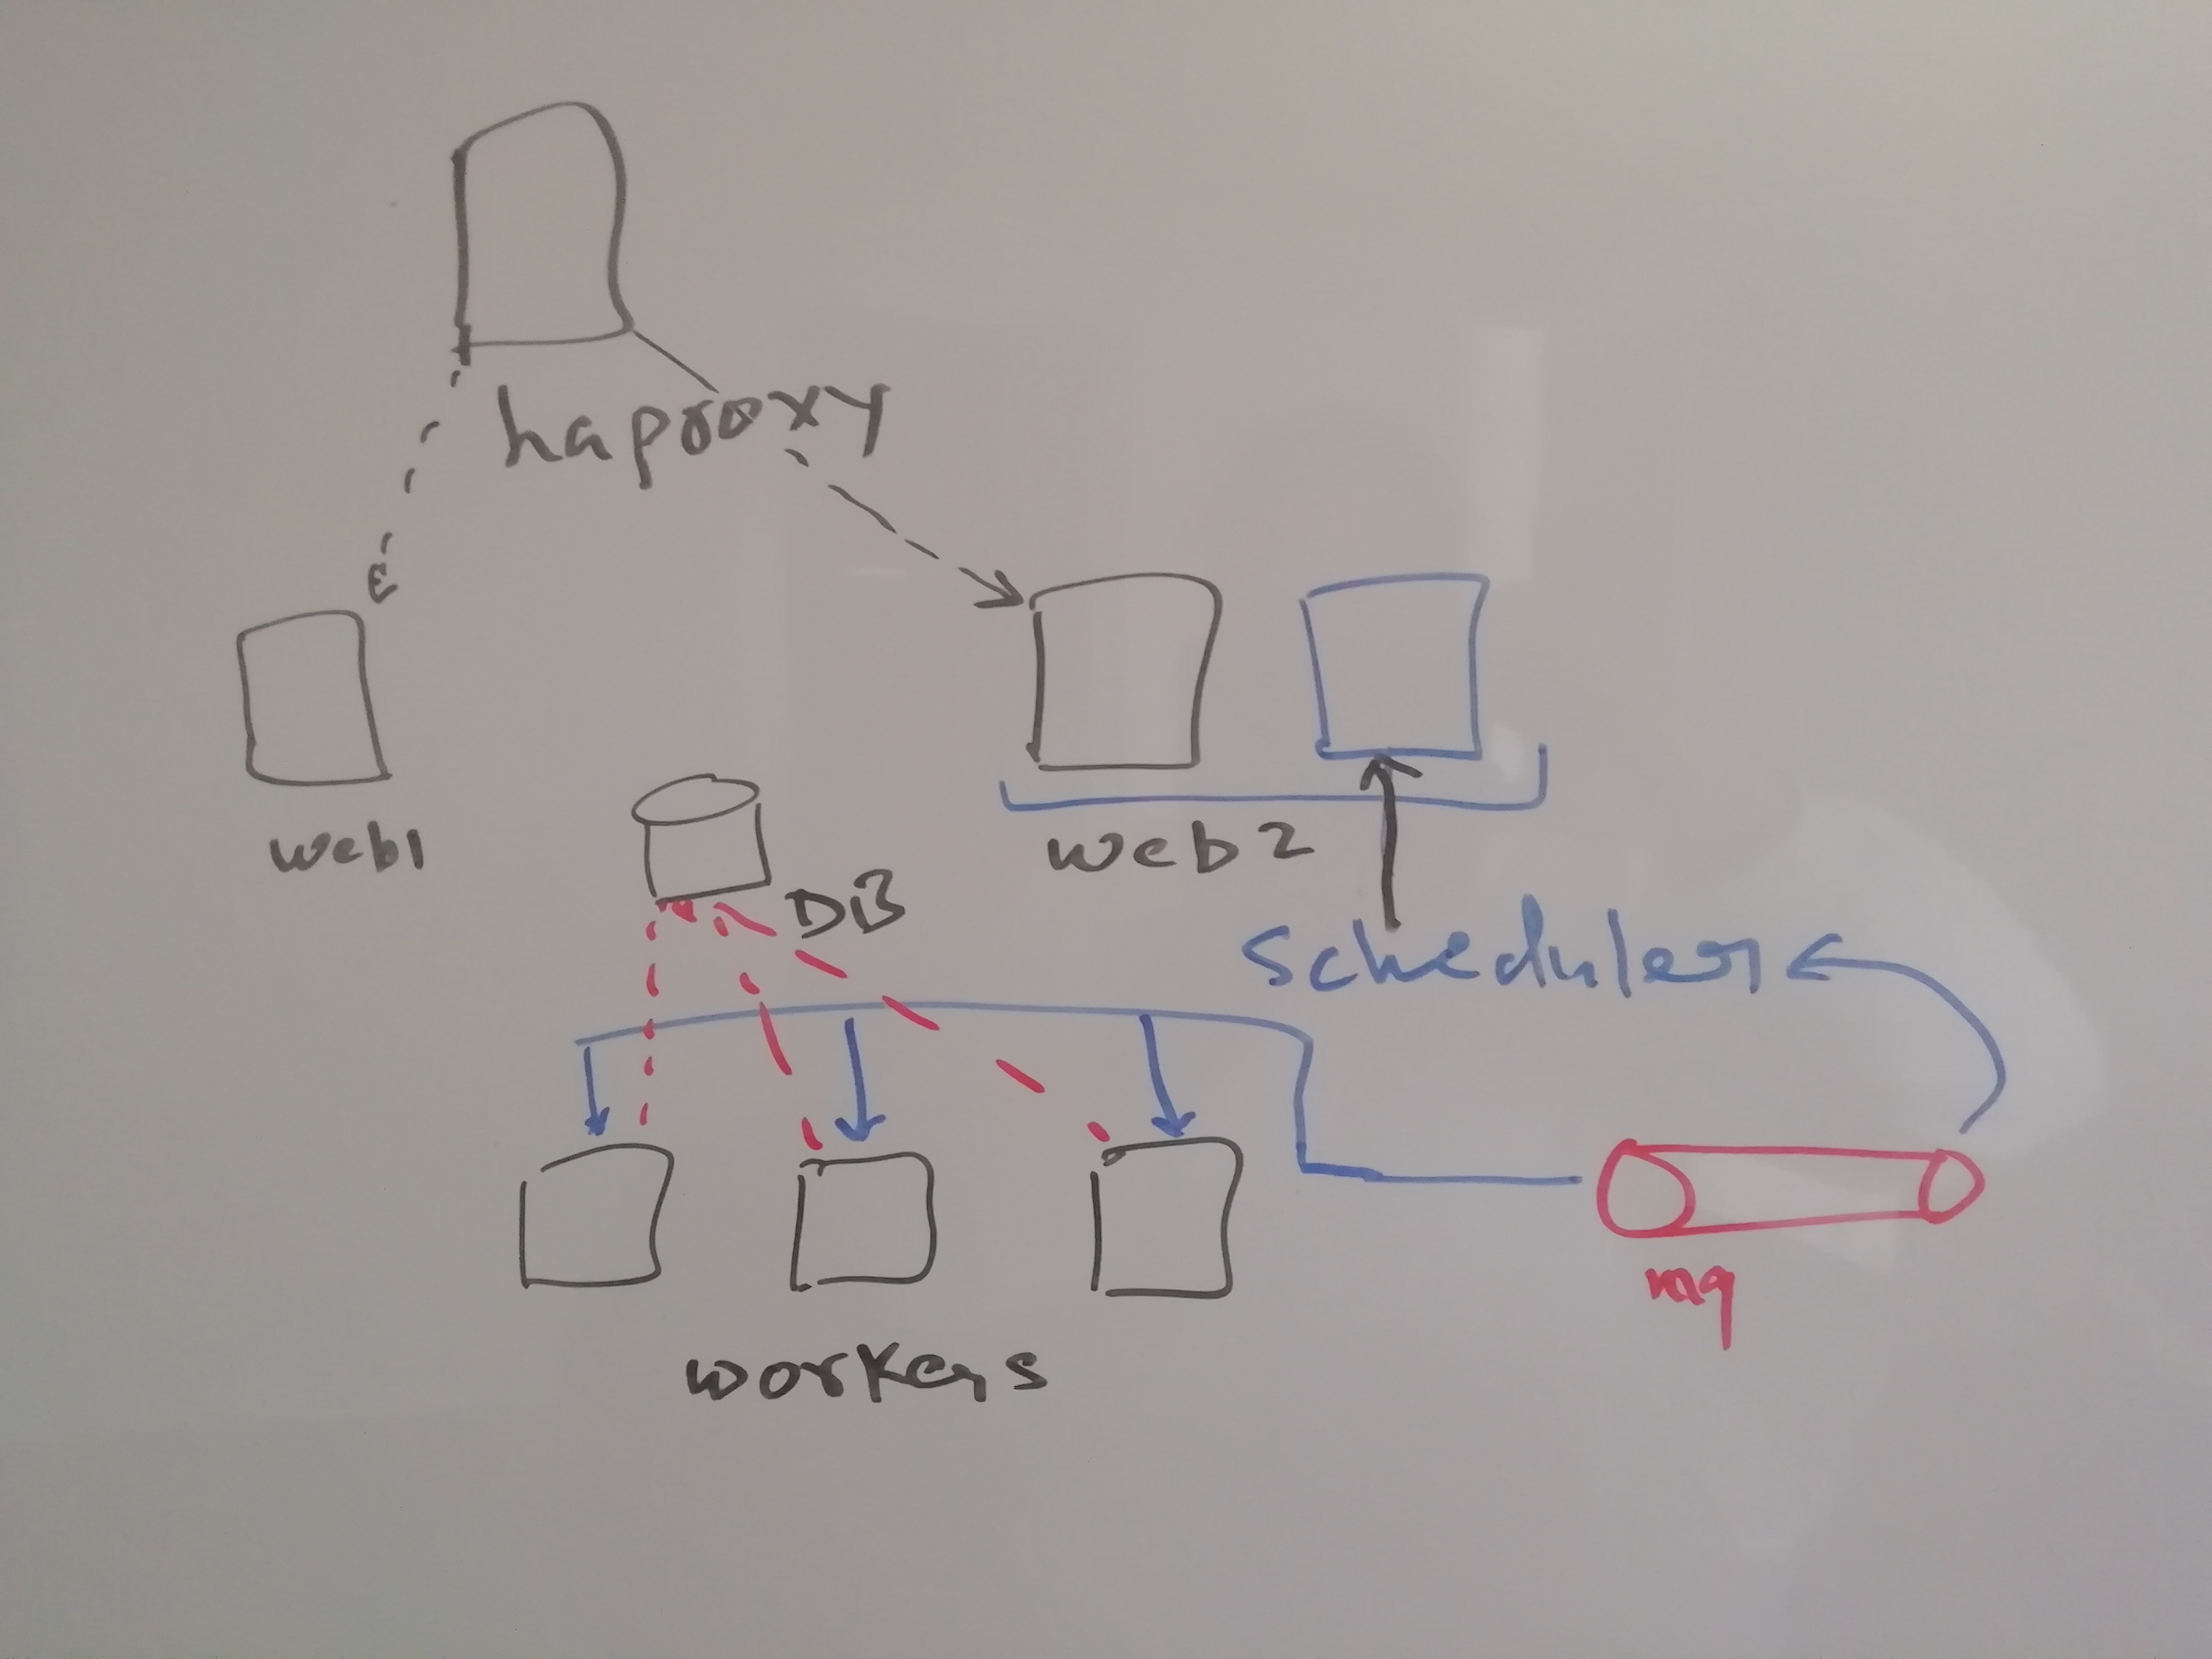 haproxy
web1
web2
DB
scheduler
mq
workers